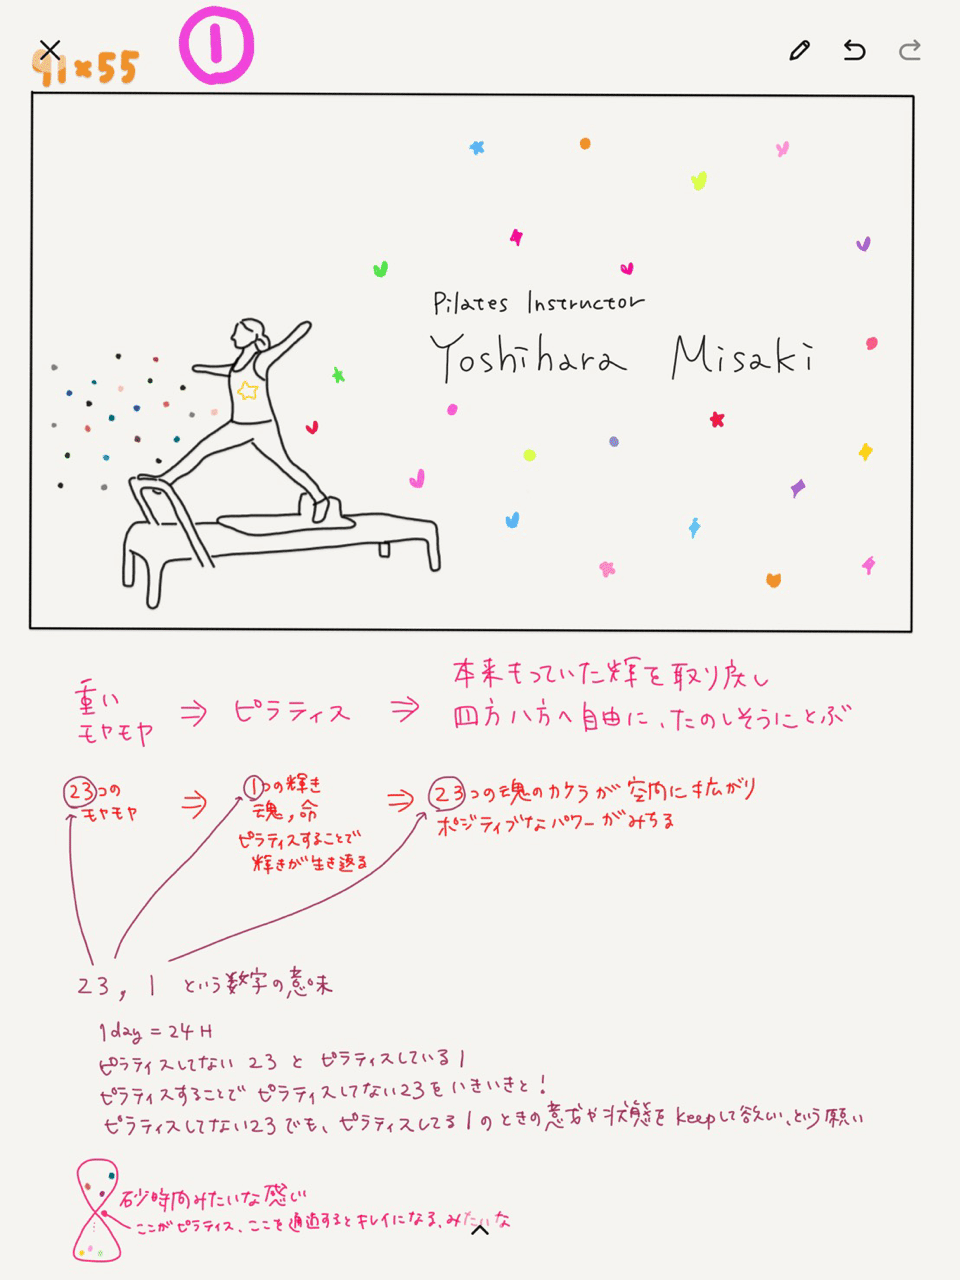 91×55
①
Pilates Instructor
Yoshihara Misaki
重い
モヤモヤ
⇒ ピラティス ⇒
本来もっていた輝を取り戻し
四方八方へ自由に、たのしそうにとぶ
23つの
モヤモヤ
⇒
1つの輝き
魂，命
ピラティスすることで
輝きが生き返る
⇒
23つの魂のカケラが空間に拡がり
ポジティブなパワーがみちる
23, 1 という数字の意味
1day = 24H
ピラティスしてない 23 と ピラティスしている 1
ピラティスすることで ピラティスしてない23を いきいきと！
ピラティスしてない23でも、ピラティスしてる1のときの意志や状態をkeepして欲しい、という願い
砂時計みたいな感じ
ここがピラティス、ここを通過するとキレイになる、みたいな